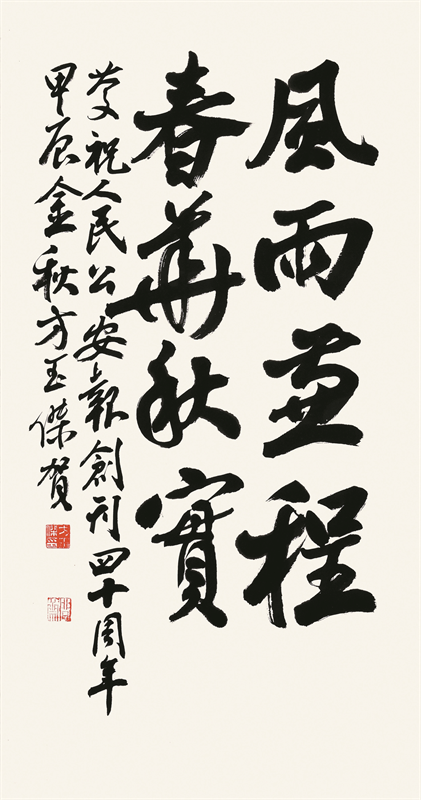 風雨兼程
春華秋實
慶祝人民公安報創刊四十周年
甲辰金秋方玉傑賀